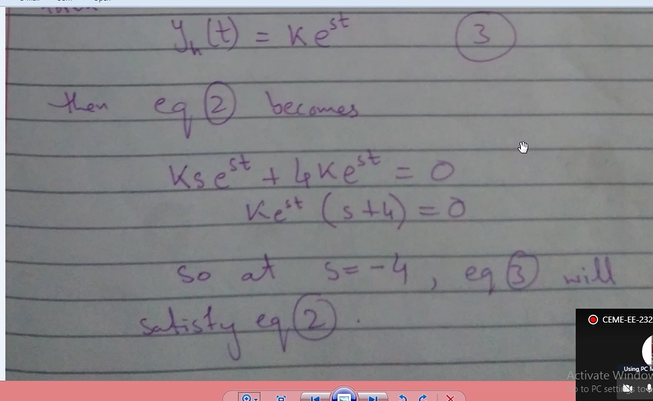 y_h(t) = Ke^{st} ③
then eq ② becomes
Kse^{st} + 4Ke^{st} = 0
Ke^{st} (s+4) = 0
so at s=-4, eq ③ will
satisfy eq ②.
CEME-EE-232
Using PC M
Activate Window
o to PC setti